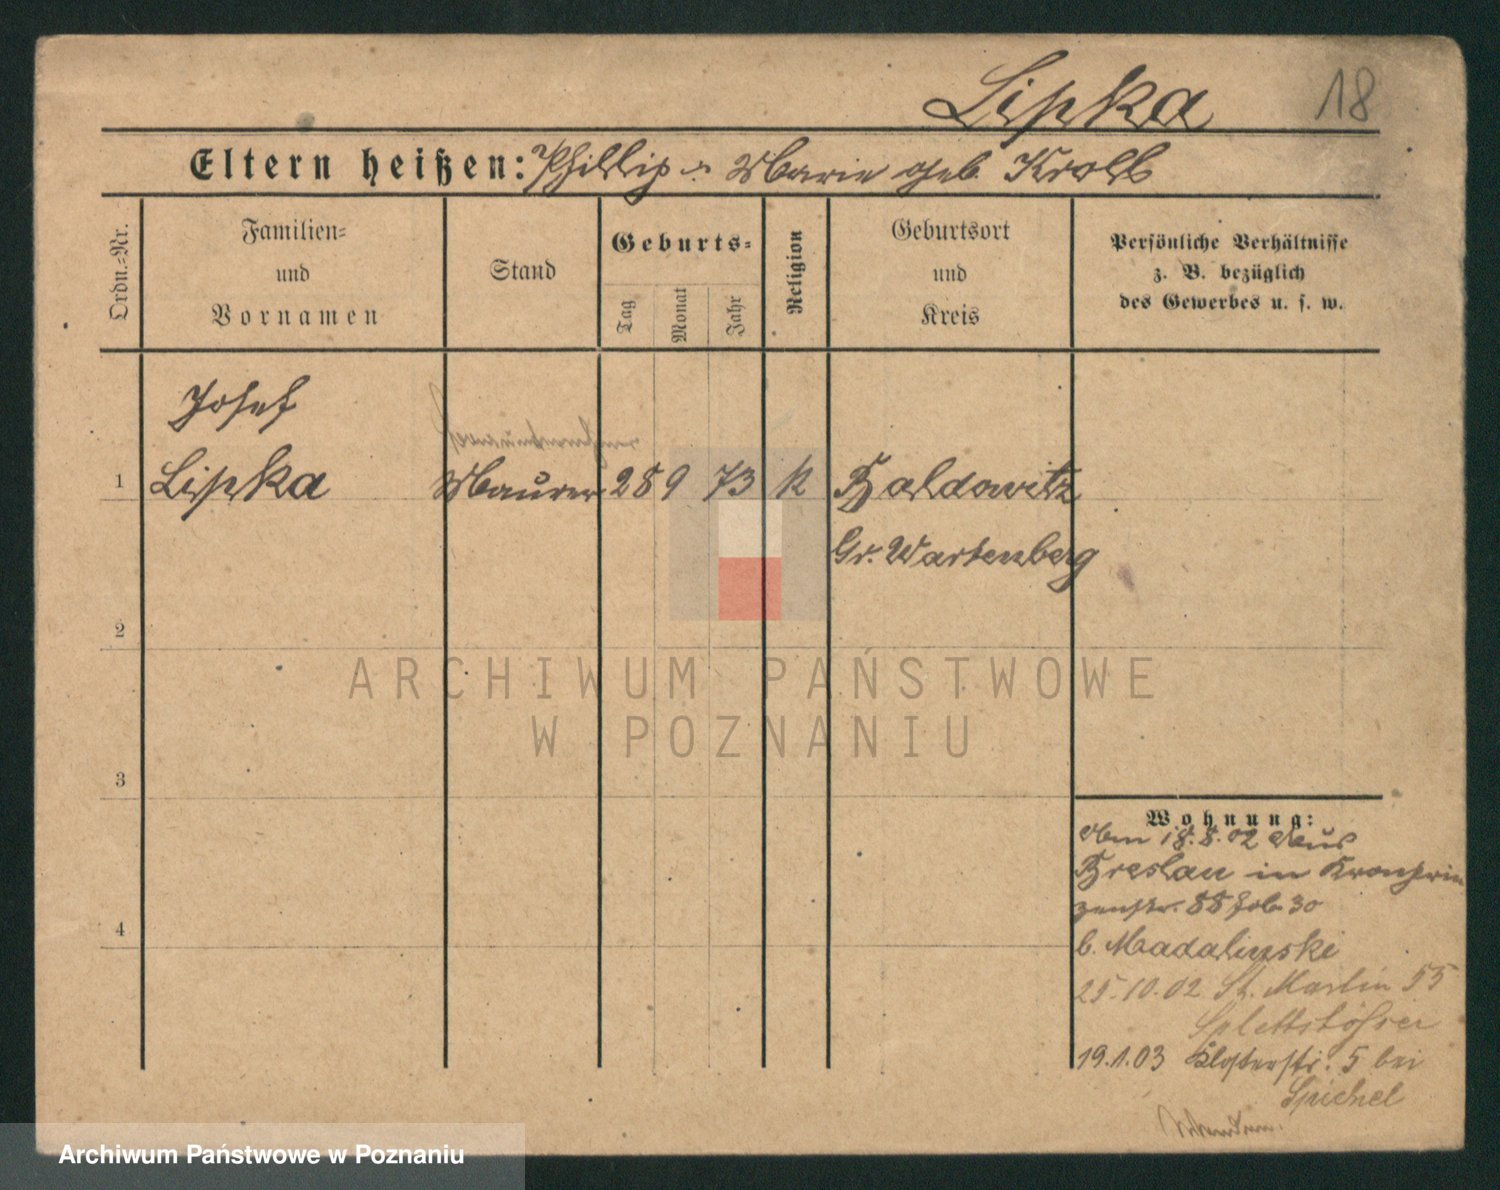 Lipka 18
Eltern heißen: Phillip u. Marie geb Kroll
Ordn.-Nr.
Familien-
und
Vornamen
Stand
Geburts-
Tag
Monat
Jahr
Religion
Geburtsort
und
Kreis
Persönliche Verhältnisse
z. B. bezüglich
des Gewerbes u. s. w.
Josef
1 Lipka Maurer 28 9 73 K Baldowitz
Gr. Wartenberg
2
ARCHIWUM PAŃSTWOWE
W POZNANIU
3
4
Wohnung:
Am 18.8.02 Aus
Breslau in Kronprin
zenstr. 88
b. Madalinski
25.10.02 St. Martin 55
Splettstößer
19.1.03 Klosterstr. 5 bei
Spichel
Archiwum Państwowe w Poznaniu